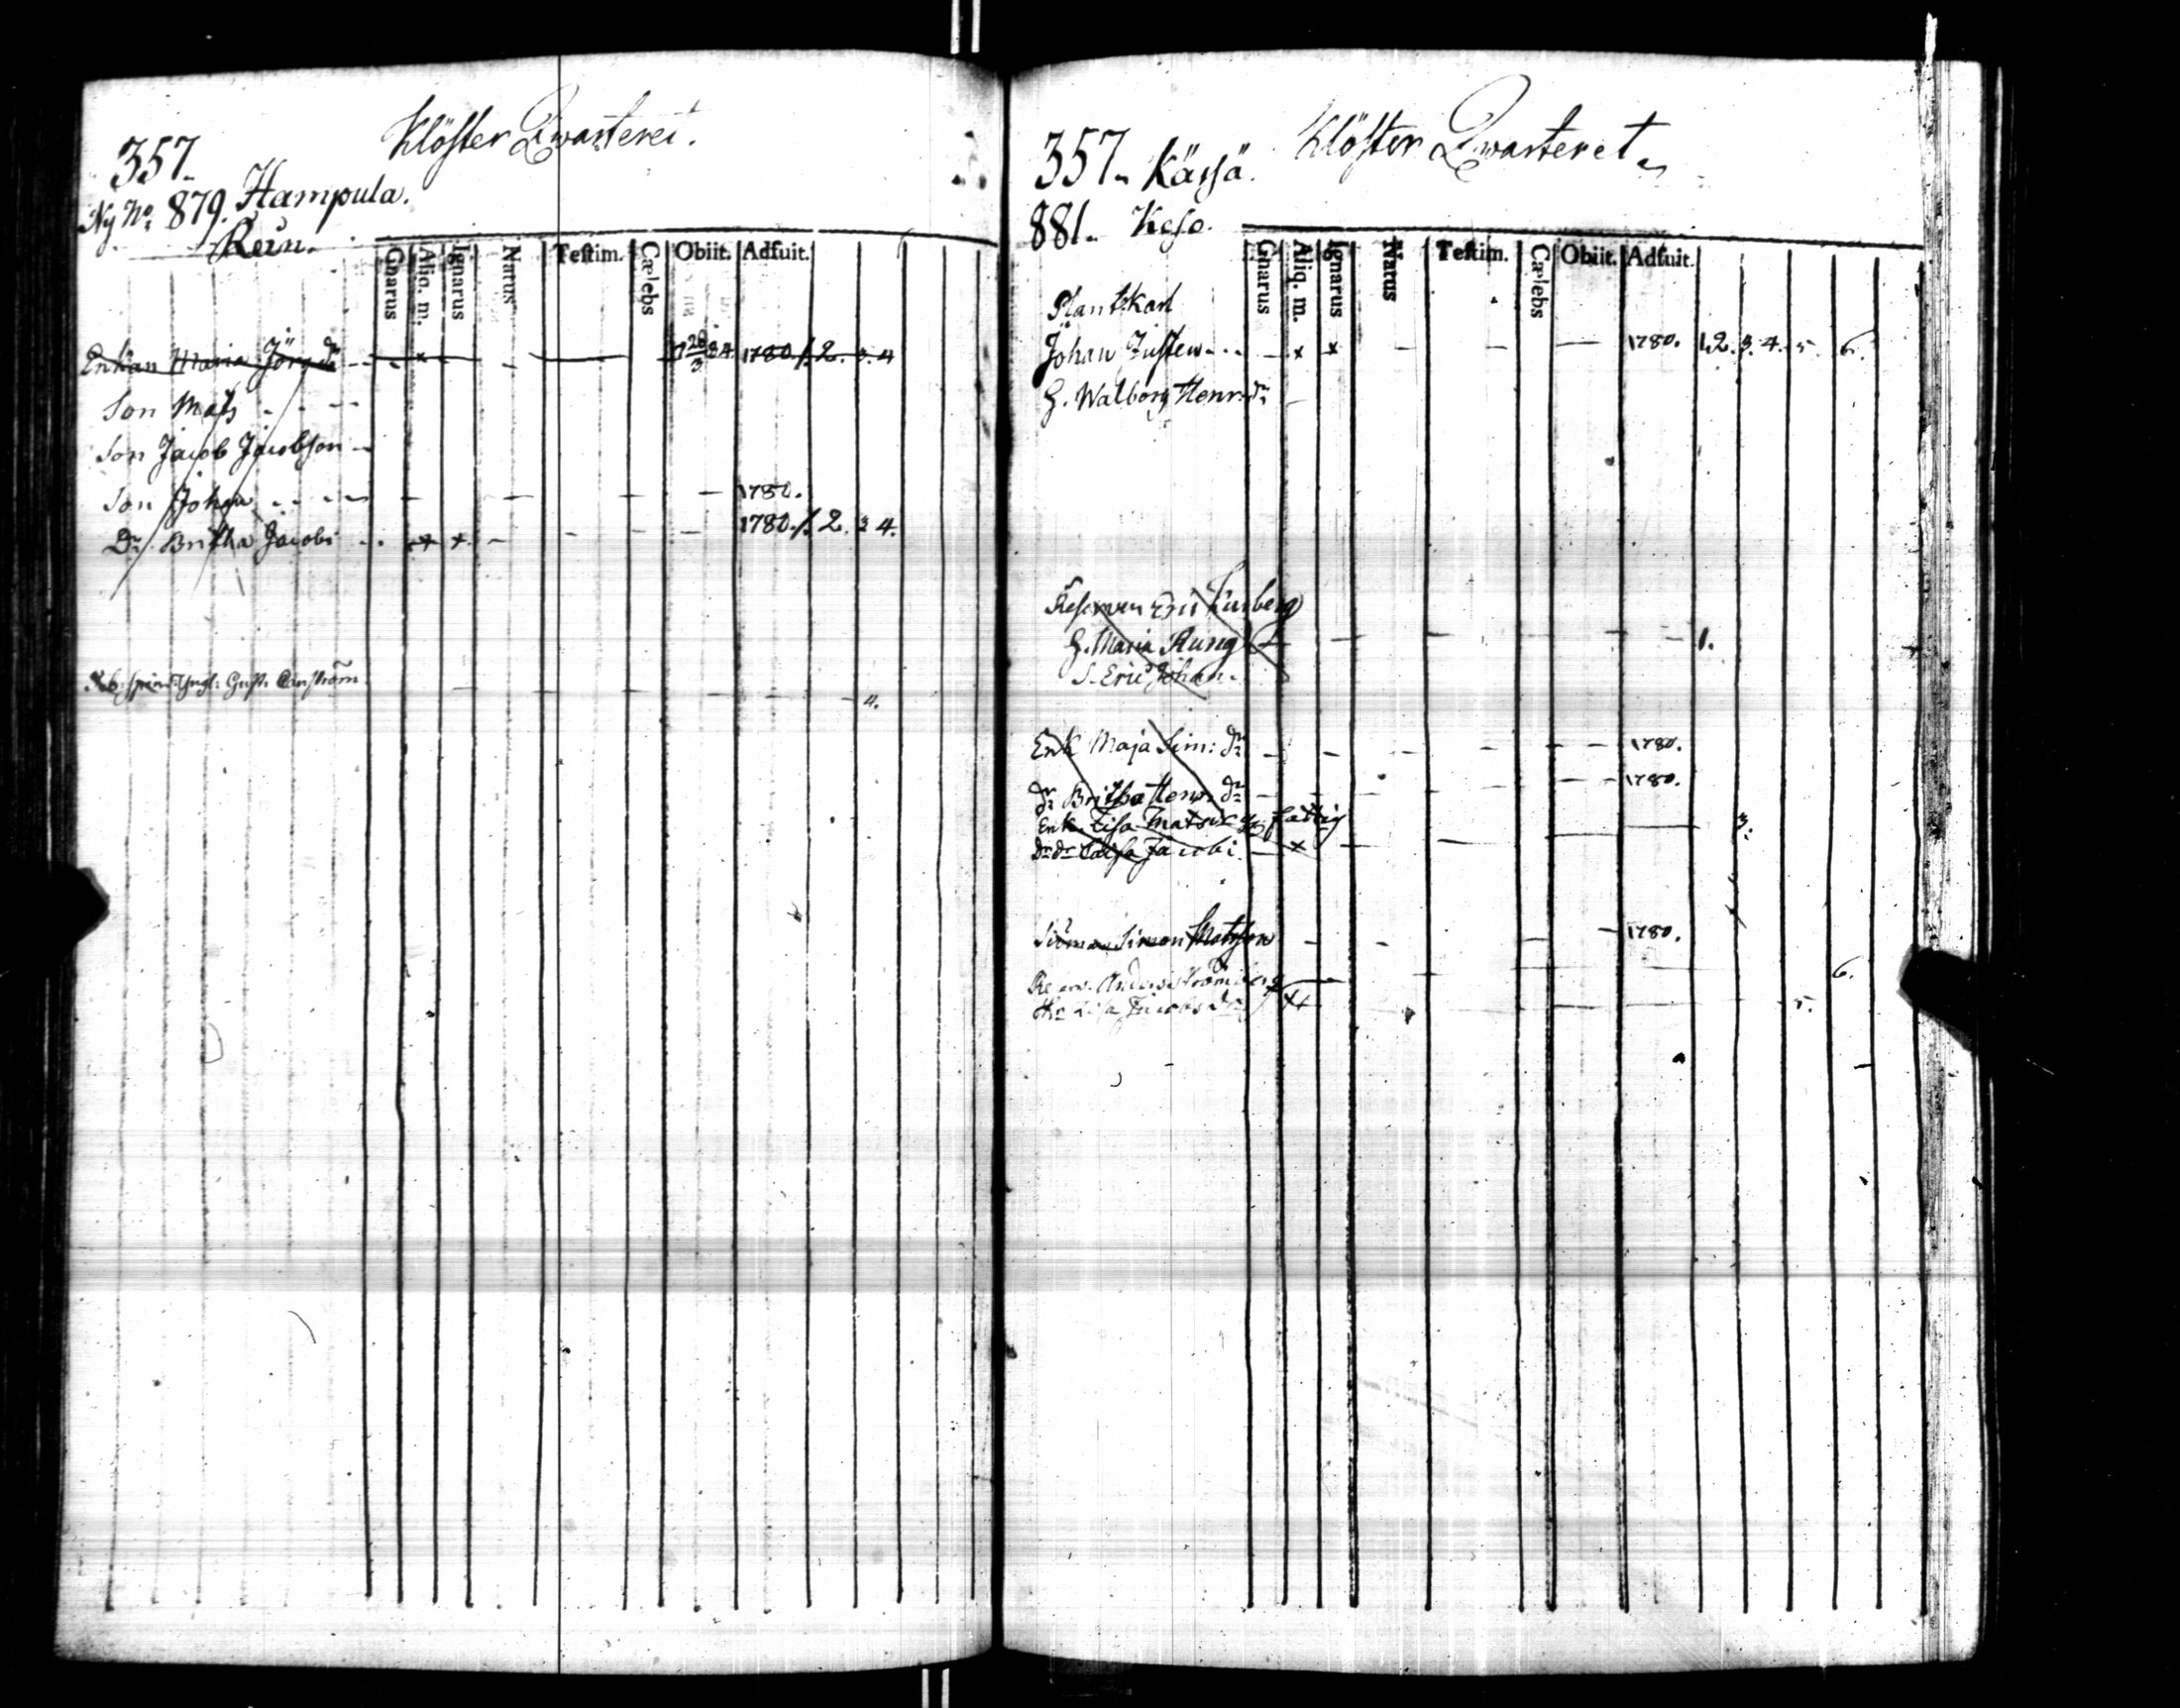 Klöster Qwarteret.
357.
Ny No: 879. Hampula.
Reün.
Gnarus Aliq. m. Ignarus Natus Testim. Cælebs Obiit. Adfuit.
Enkan Maria Jörg dr - - × - 1780. 1. 2. 3. 4
Son Mats - - -
Son Jacob Jacobson -
Son Johan - - - - - - - - 1780.
Dr. Britha Jacobi - - × × - - - - 1780. 1. 2. 3 4.
Gust. - - - - - - - - 4.
Klöster Qwarteret.
357. Kässä.
881. Keso.
Gnarus Aliq. m. Ignarus Natus Testim. Cælebs Obiit. Adfuit.
Plant:karl
Johan Justen - - - - × × - - - - 1780. 1. 2. 3. 4. 5. 6.
H. Walborg Henr: dr -
Reserven Eric
H. Maria Rung - - - - - - 1.
S. Eric Johan.
Enk Maja Sim: dr - - - - - - 1780.
dr Britha Henr. dr - - - - - 1780.
Enk. Lisa Mats fattig 3.
dr dr Caisa Jacobi - × - - -
Simon Matsson - - - - 1780.
Anders Strömberg - - 6.
Lisa Jacobs dr - - 5.